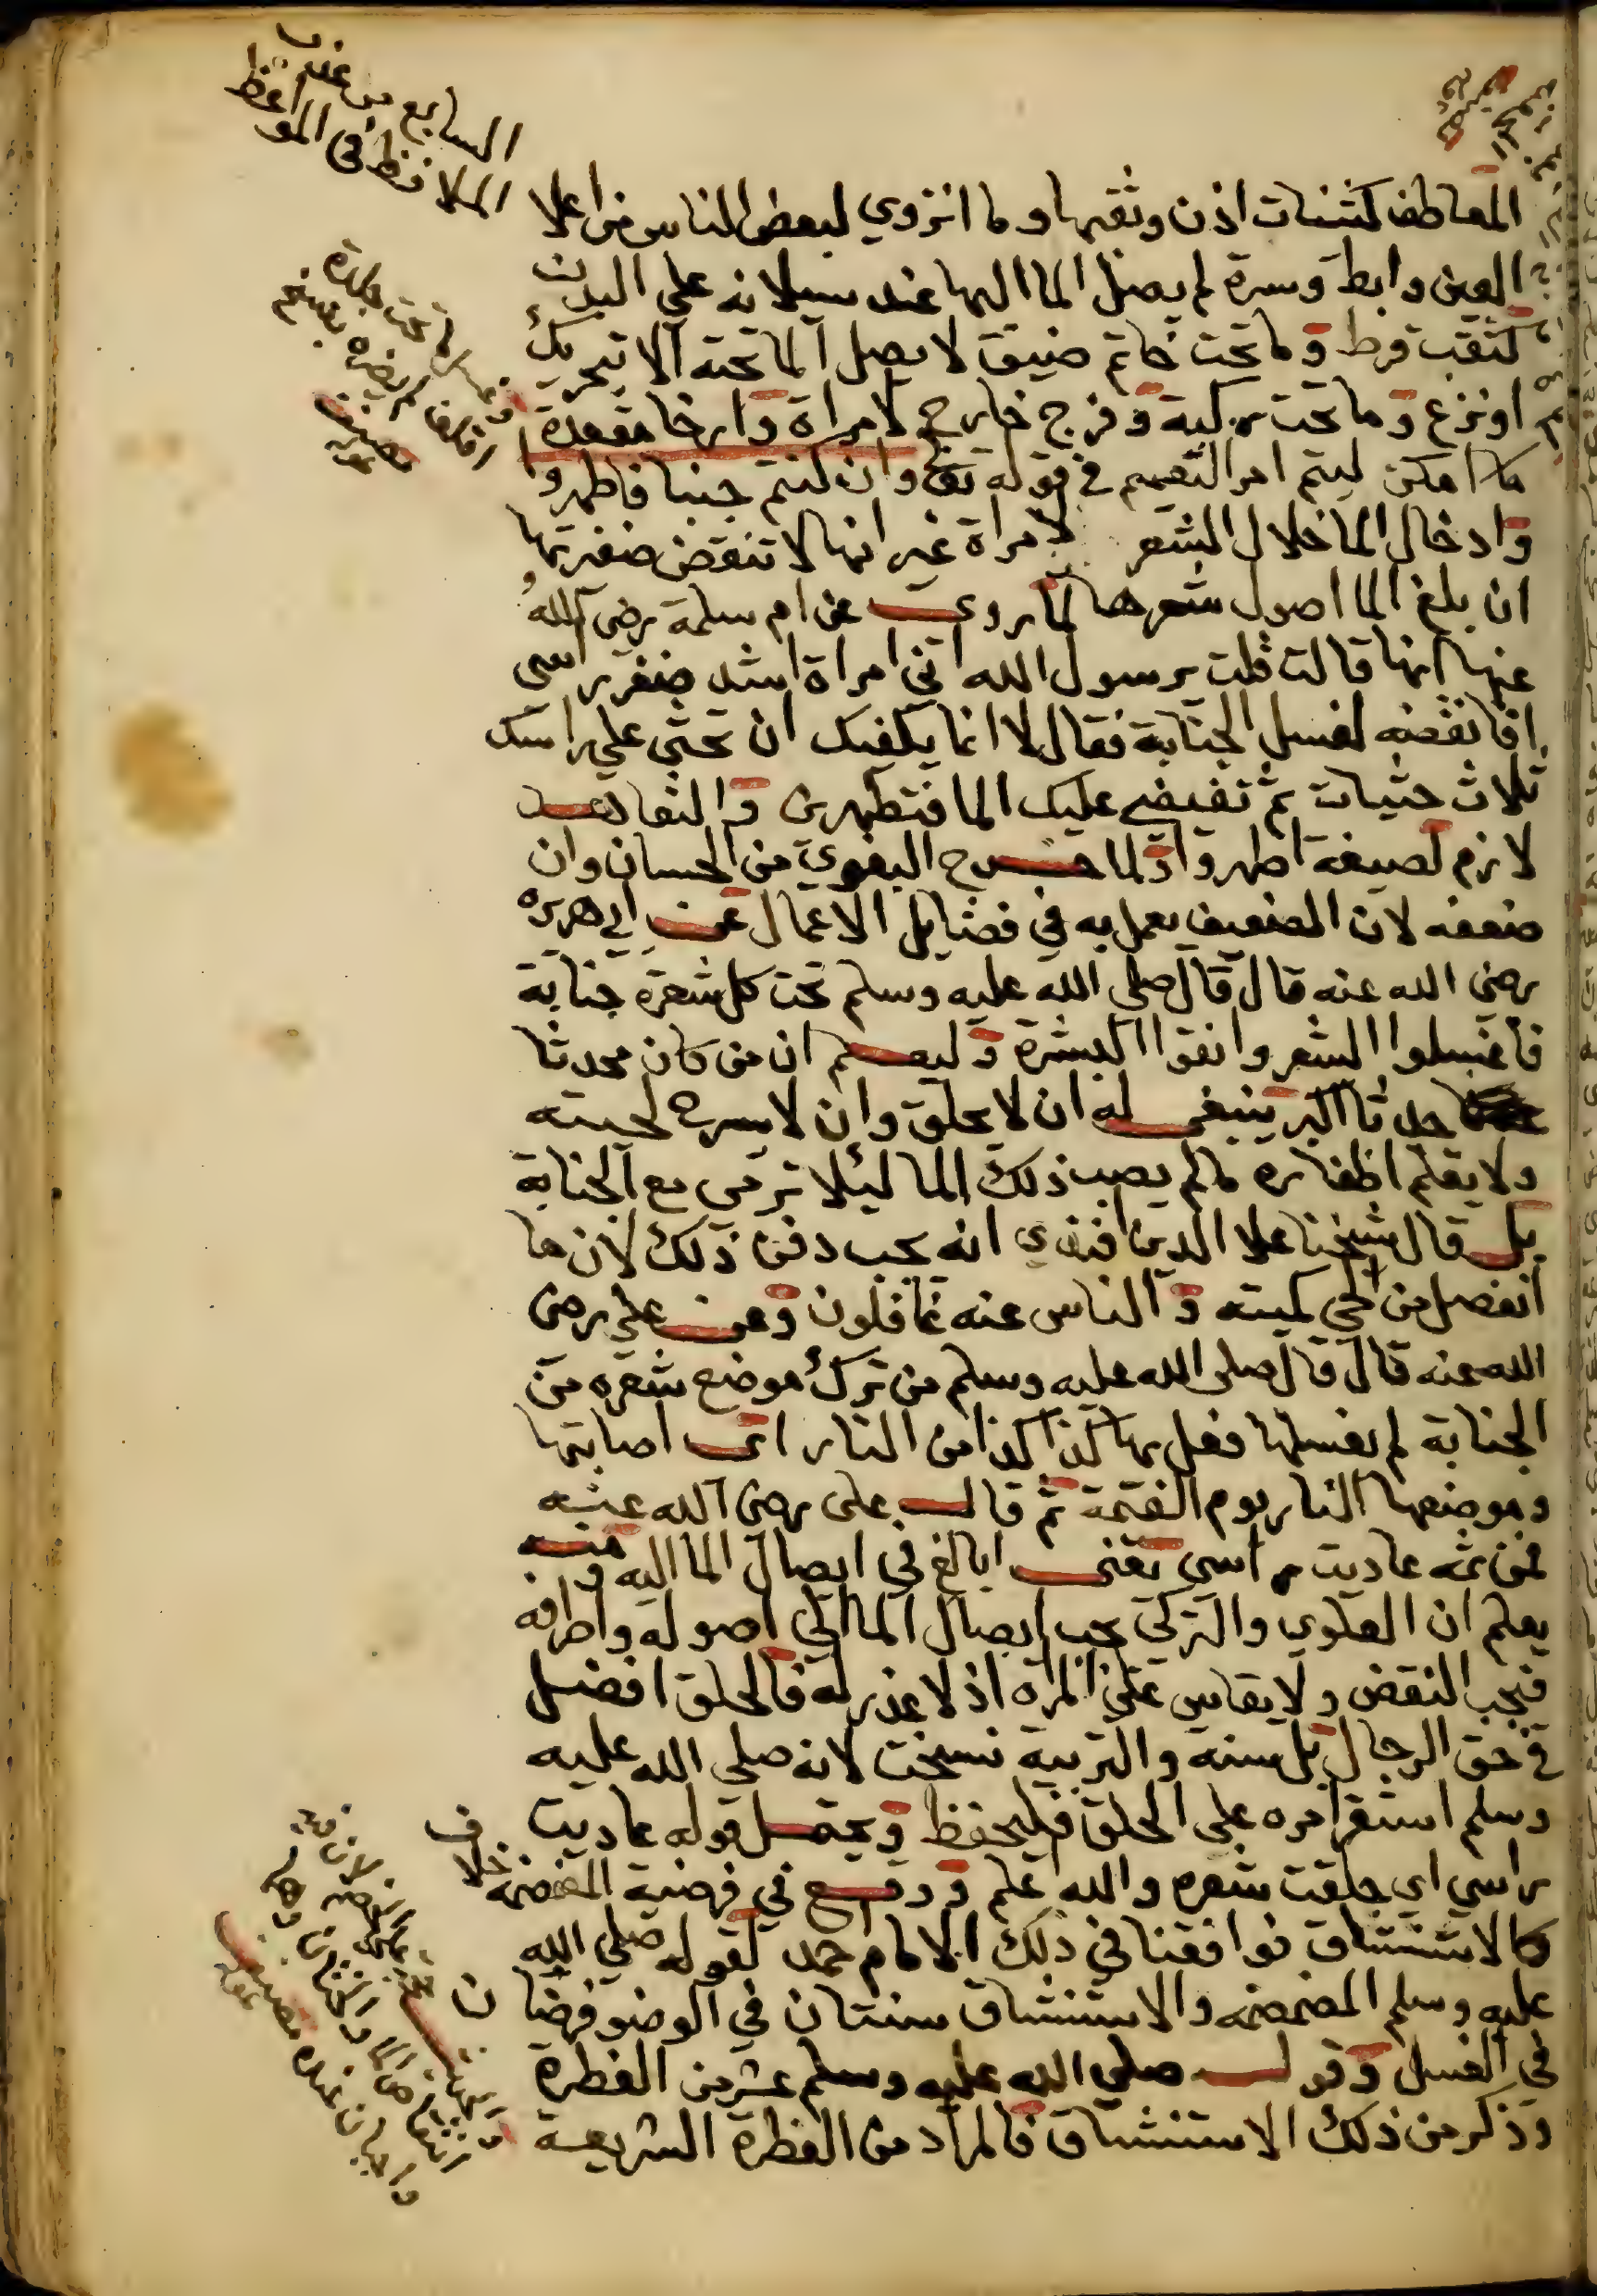 السابع من عشر
الملاحظ في المواعظ
المعاطف كثنيات اذن وثقبها وما انزوي لبعض الناس من اعلا
العين وابط وسرة لم يصل الما اليها عند سيلانه علي البدن
كثقب قرط وما تحت خاتم ضيق لا يصل الما تحته الا بتحريك
او نزع وما تحت بركبة وفرج خارج لامراة وارخا مقعدة
ما امكن ليتم امر التعميم في قوله تعا وان كنتم جنبا فاطهروا
وادخال الما خلال الشعر لامراة غير انها لا تنقض ضفيرتها
ان بلغ الما اصول شعرها لما روي عن ام سلمة رضي الله
عنها انها قالت قلت يرسول الله اني امراة اشد ضفر راسي
افانقضه لغسل الجنابة فقال لا انما يكفيك ان تحثي علي راسك
ثلاث حثيات ثم تفيضي عليك الما فتطهرين والتعاهد
لازم لصيغة اطهروا ولما خرج البغوي من الحسان وان
ضعفه لان الضعيف يعمل به في فضايل الاعمال عن ابي هريره
رضي الله عنه قال قال صلي الله عليه وسلم تحت كل شعرة جنابة
فاغسلوا الشعر وانقوا البشرة وليعلم ان من كان محدثا
حدثا اكبر ينبغي له ان لا يحلق وان لا يسرح لحيته
ولا يقلم اظفاره مالم يصب ذلك الما ليلا ترمي مع الجنابة
بل قال شيخنا علا الدين افندي انه يجب دفن ذلك لان ما
انفصل من الحي كميته والناس عنه غافلون وعن علي رضي
الله عنه قال قال صلي الله عليه وسلم من ترك موضع شعره من
الجنابة لم يغسلها فعل بها كذا كذا من النار اي اصابتها
وموضعها النار يوم القيمة ثم قال علي رضي الله عنه
فمن ثمه عاديت راسي يعني ابالغ في ايصال الما اليه ومنه
يعلم ان العلوي والتركي يجب ايصال الما الي اصوله واطرافه
فيجب النقض ولا يقاس علي المراه اذ لا عذر له فالحلق افضل
في حق الرجال بل سنه والتربية نسخت لانه صلي الله عليه
وسلم استقر امره علي الحلق فليحفظ ويحتمل قوله عاديت
راسي اي حلقت شعره والله اعلم ووقع في فرضية المضمضه خلاف
كالاستنشاق فوافقنا في ذلك الامام احمد لقوله صلي الله
عليه وسلم المضمضه والاستنشاق سنتان في الوضو فرضان
في الغسل وقوله صلي الله عليه وسلم عشر من الفطرة
وذكر من ذلك الاستنشاق فالمراد من الفطرة الشريعه